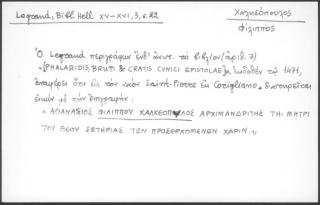 Legrand, Bibl Hell XV-XVI, 3, σ. 22
Χαλκεόπουλος
Φίλιππος
Ὁ Legrand περιγράφων ἐνθ' ἀνωτ. τὸ βιβλίον (ἀριθ. 7)
«[PHALARIDIS, BRUTI & CRATIS CYNICI EPISTOLAE]», ἐκδοθὲν τῷ 1471,
ἀναφέρει ὅτι εἰς τὸν ναὸν Saint-Pierre εἰς Corigliano διατηρεῖται
εἰκὼν μὲ τὴν ἐπιγραφήν:
« ΑΘΑΝΑΣΙΟΣ ΦΙΛΙΠΠΟΥ ΧΑΛΚΕΟΠΟΥΛΟΣ ΑΡΧΙΜΑΝΔΡΙΤΗΣ ΤΗι ΜΗΤΡΙ
ΤΟΥ ΘΕΟΥ ΣΩΤΗΡΙΑΣ ΤΩΝ ΠΡΟΣΕΡΧΟΜΕΝΩΝ ΧΑΡΙΝ.»